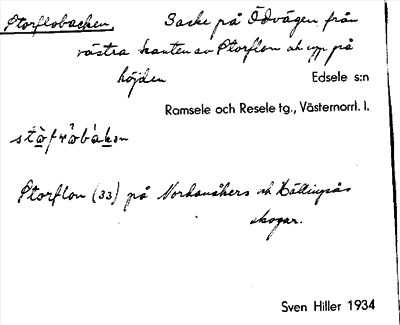 Storflobacken, Backe på Ödvägen från
västra kanten av Storflon och upp på
höjden Edsele s:n
Ramsele och Resele tg., Västernorrl. l.
Storflon (33) på Nordanåkers och Källingsås
skogar.
Sven Hiller 1934